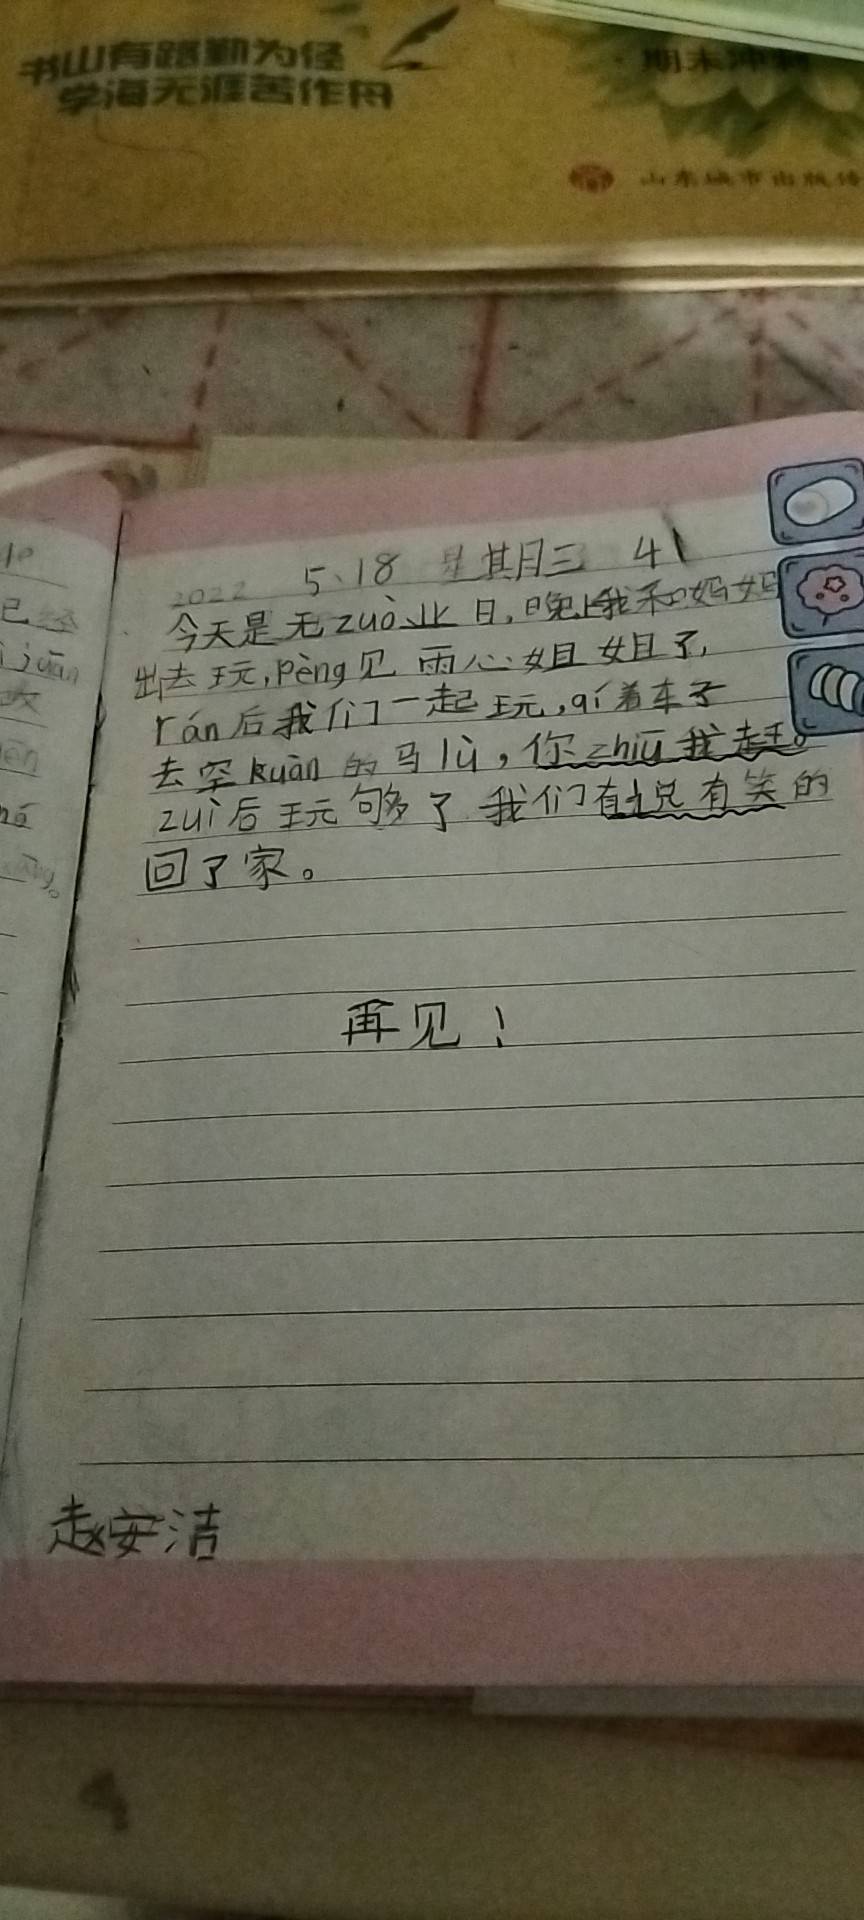 书山有路勤为径
学海无涯苦作舟
期末冲刺
山东城市出版传
2022 5、18 星其月三 41
今天是无zuò业日,晚上我和妈妈
出去玩,pèng见雨心姐姐了,
rán后我们一起玩,qí着车子
去空kuàn的马lù,你zhiū我赶。
zuì后玩够了我们有说有笑的
回了家。
再见!
赵安洁
10
已经
juān